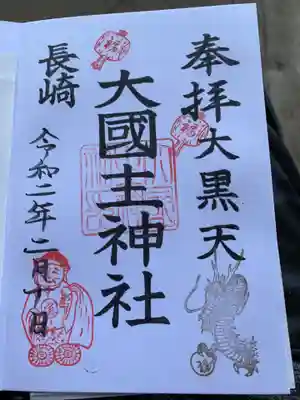 奉拝 大黒天
大國主神社
長崎
令和二年二月十日